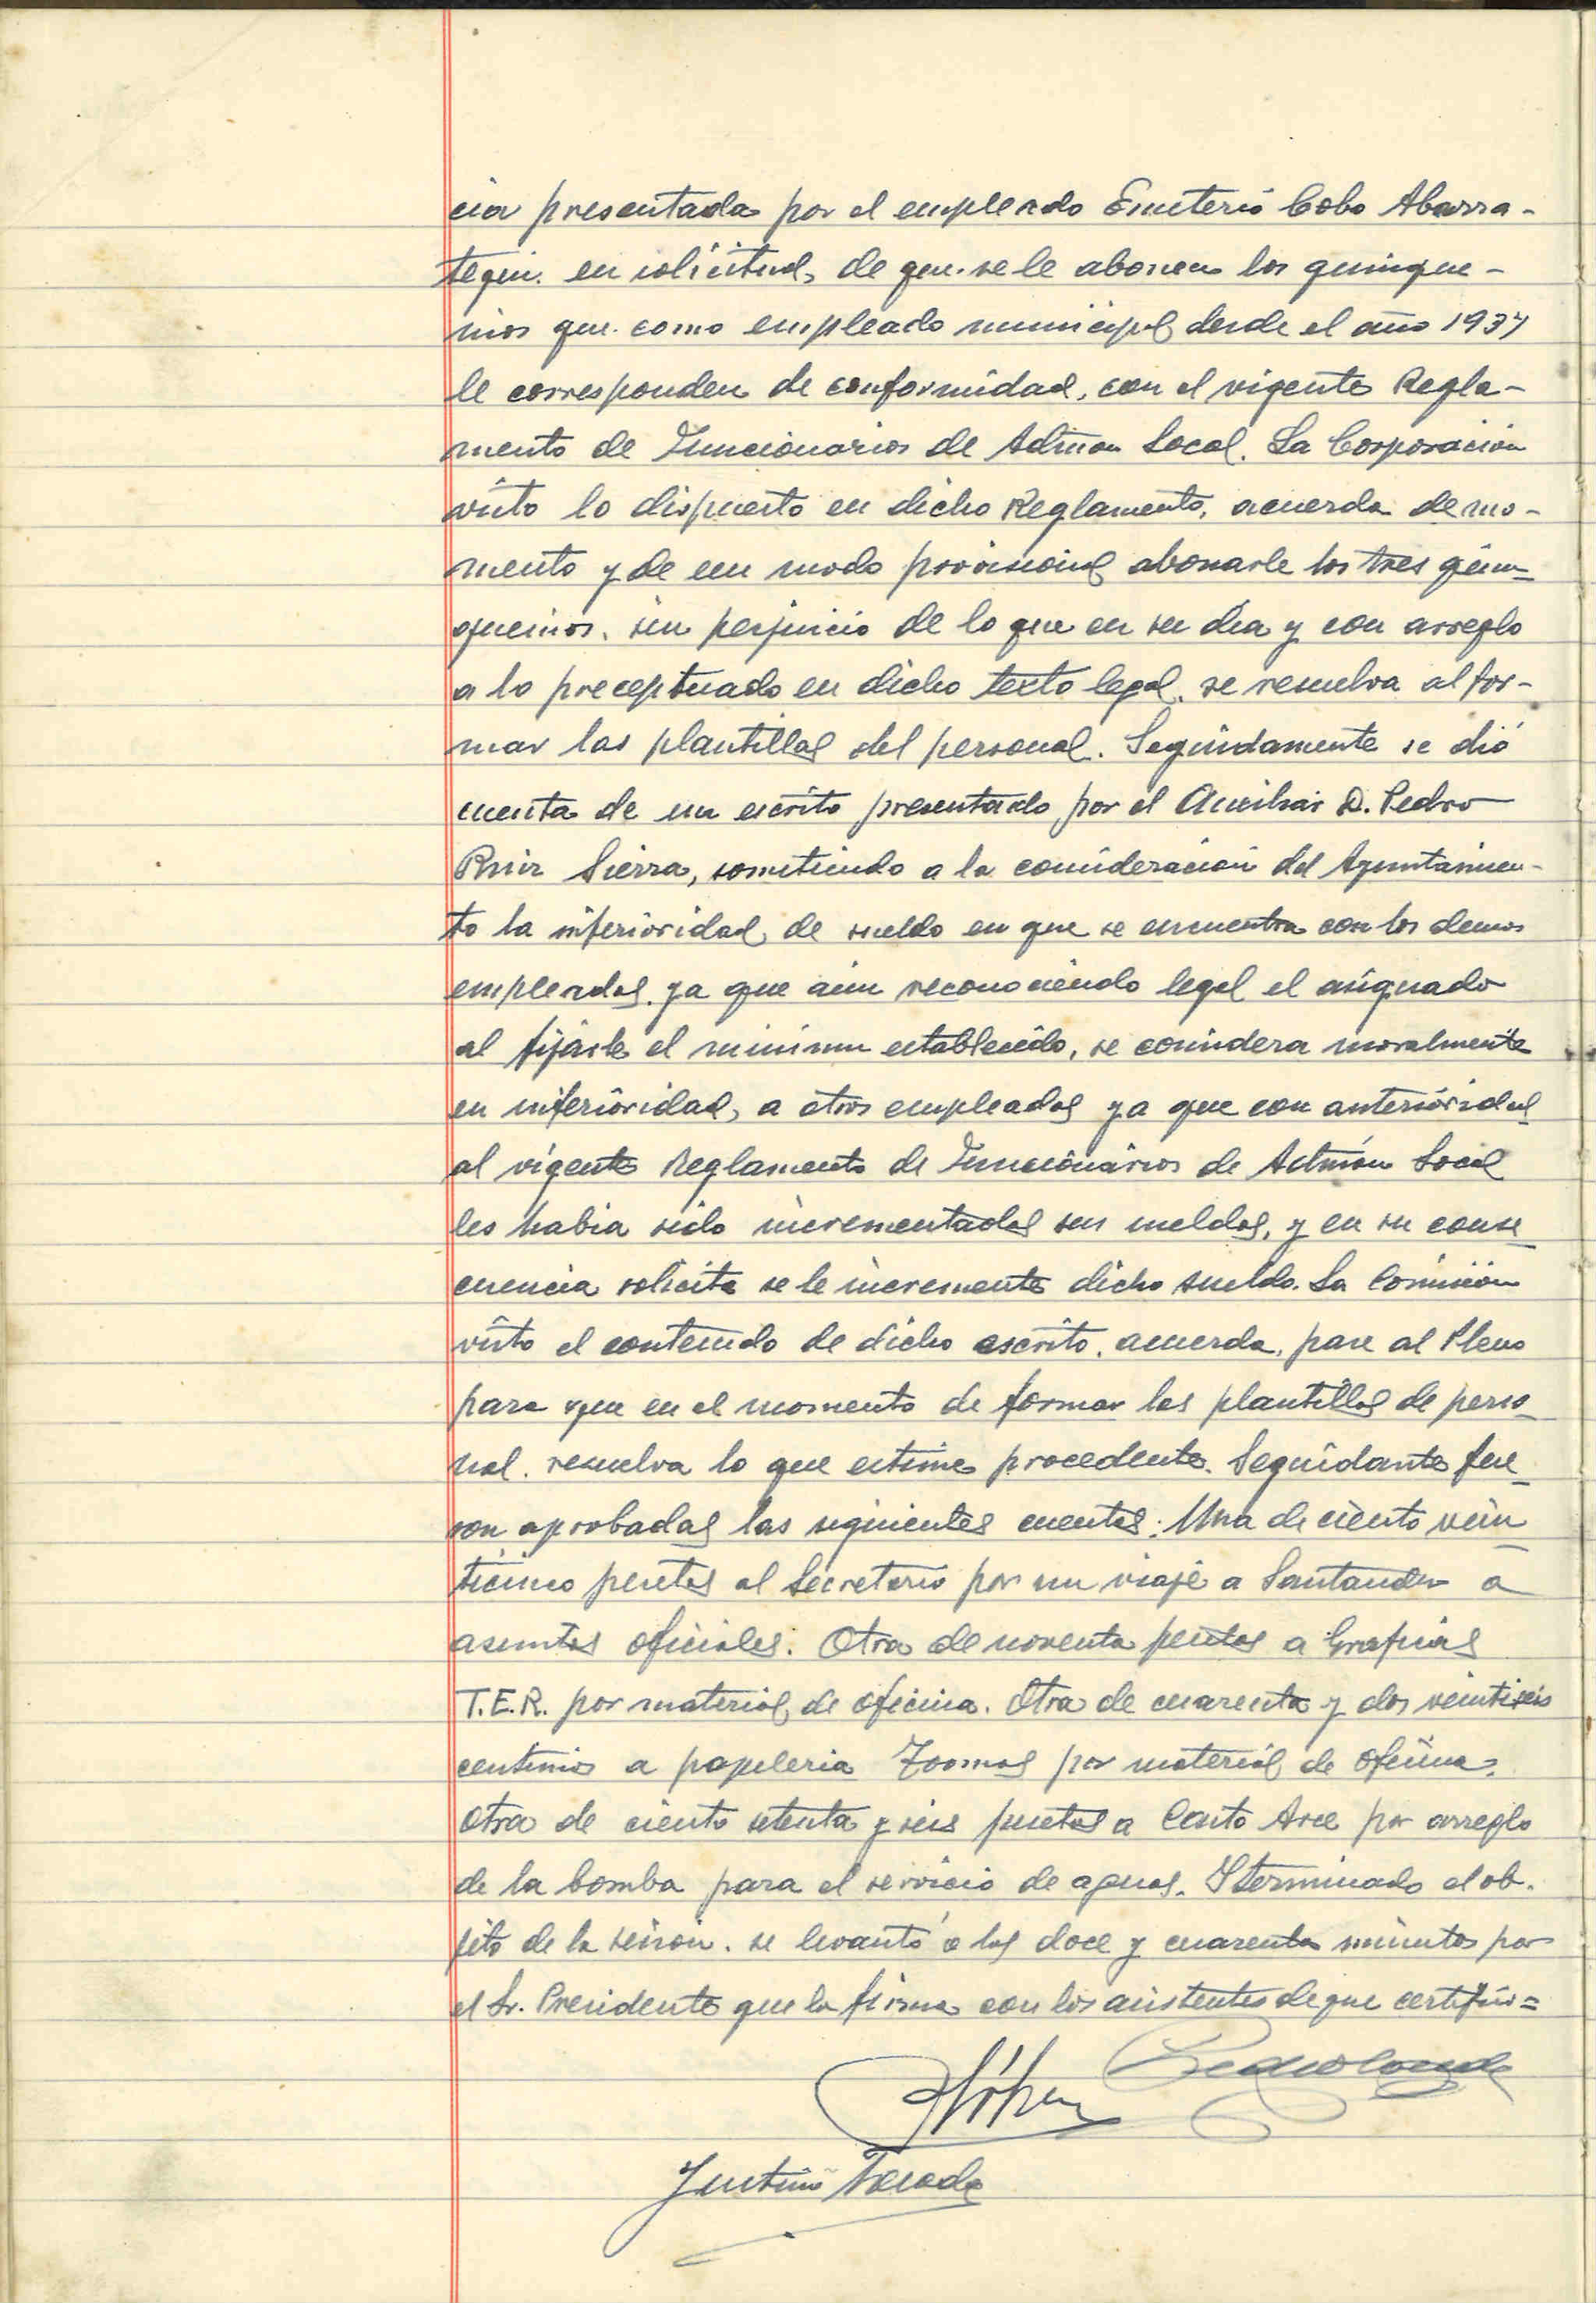 cia presentada por el empleado Emeterio Cobo Abarra-
tegui. en solicitud, de que se le abonen los quinque-
nios que como empleado municipal desde el año 1937
le corresponden de conformidad, con el vigente Regla-
mento de Funcionarios de Admon Local. La Corporacion
visto lo dispuesto en dicho Reglamento, acuerda de mo-
mento y de un modo provisional abonarle los tres quin-
quenios. sin perjuicio de lo que en su dia y con arreglo
a lo preceptuado en dicho texto legal. se resuelva al for-
mar las plantillas del personal. Seguidamente se dió
cuenta de un escrito presentado por el Auxiliar D. Pedro
Ruiz Sierra, sometiendo a la consideracion del Ayuntamien-
to la inferioridad de sueldo en que se encuentra con los demas
empleados. ya que aun reconociendo legal el asignado
al fijarle el minimun establecido, se considera moralmente
en inferioridad, a otros empleados ya que con anterioridad
al vigente Reglamento de Funcionarios de Admón Local
les habia sido incrementados sus sueldos, y en su conse
cuencia solicita se le incremente dicho sueldo. La Comisión
visto el contenido de dicho escrito. acuerda, pase al Pleno
para que en el momento de formar las plantillas de perso-
nal. resuelva lo que estime procedente. Seguidante fue-
ron aprobadas las siguientes cuentas: Una de ciento vein
ticinco pesetas al Secretario por un viaje a Santander a
asuntos oficiales. Otra de noventa pesetas a Graficas
T.E.R. por material de oficina. Otra de cuarenta y dos veintiseis
centimos a papeleria por material de oficina.
Otra de ciento setenta y seis pesetas a Arce por arreglo
de la bomba para el servicio de aguas. Y terminado el ob-
jeto de la sesion. se levantó a las doce y cuarenta minutos por
el Sr. Presidente que la firma con los asistentes de que certifico=